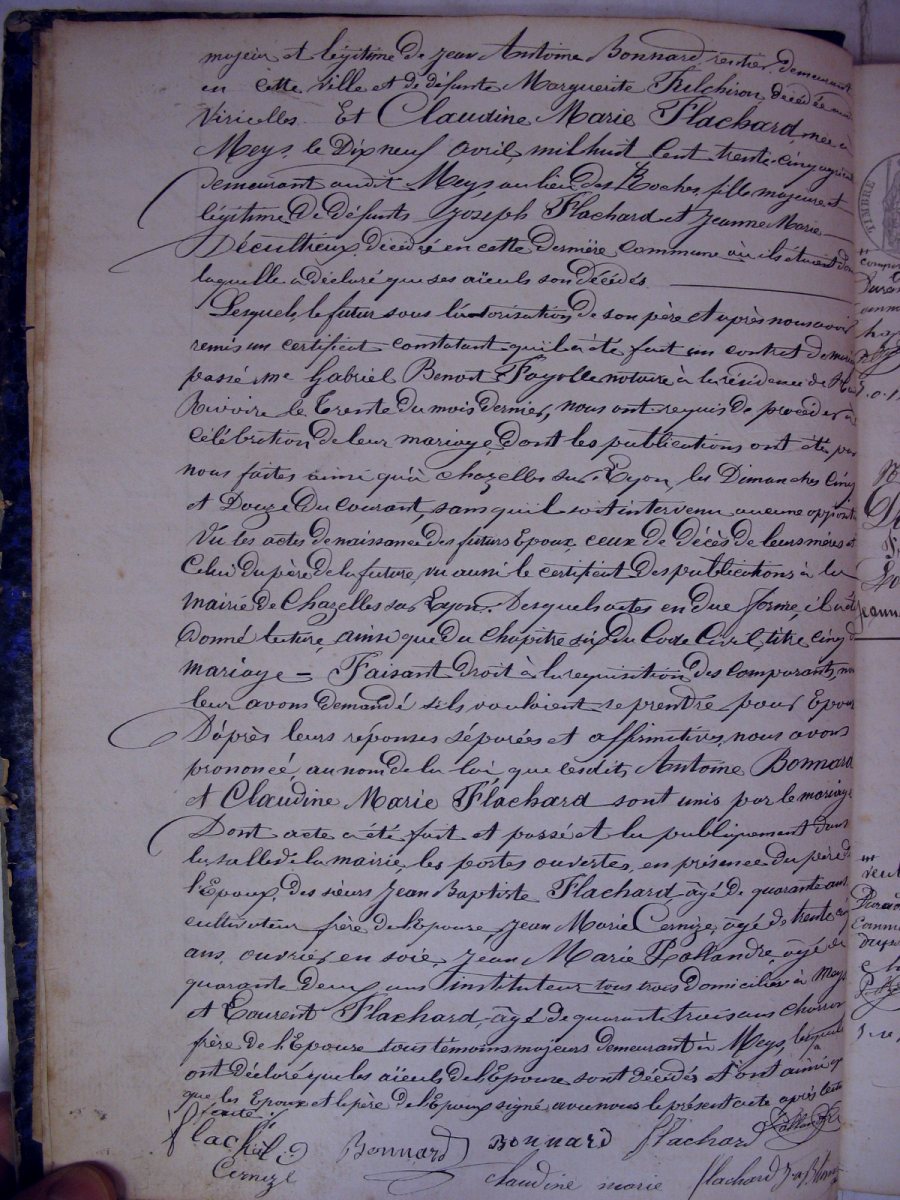 majeur et légitime de Jean Antoine Bonnard rentier demeurant
en cette ville et de défunte Marguerite Filchiron, décédée audit
Viricelles. Et Claudine Marie Flachard, née à
Meys, le Dix neuf avril mil huit cent trente-cinq
demeurant audit Meys au lieu des Roches, fille majeure et
légitime de défunts Joseph Flachard et Jeanne Marie
Décultieux, décédés en cette dernière commune où ils étaient
laquelle a déclaré que ses aïeuls son décédés.
Lesquels, le futur sous l'autorisation de son père et après nous avoir
remis un certificat constatant qu'il a été fait un contrat de mariage
passé Me Gabriel Benoit Fayolle notaire à la résidence de
Rivoire le trente du mois dernier, nous ont requis de procéder à
célébration de leur mariage dont les publications ont été par
nous faites ainsi qu'à Chazelles sur Lyon, les Dimanches cinq
et Douze du courant, sans qu'il soit intervenu aucune opposit
Vu les actes de naissance des futurs Epoux, ceux de décès de leurs mères et
celui du père de la future, vu aussi le certificat des publications à la
mairie de Chazelles sur Lyon. Desquels actes en due forme, il a été
donné lecture, ainsi que du chapitre six du Code Civil, titre cinq
mariage = Faisant droit à la requisition des comparants, nous
leur avons demandé s'ils voulaient se prendre pour Epoux
D'après leurs réponses séparées et affirmatives, nous avons
prononcé, au nom de la loi, que lesdits, Antoine Bonnard
et Claudine Marie Flachard sont unis par le mariage
Dont acte a été fait et passé et lu publiquement dans
la salle de la mairie, les portes ouvertes, en présence du père de
l'Epoux, des sieurs Jean Baptiste Flachard âgé de quarante ans
cultivateur frère de l'Epouse, Jean Marie Cernize, âgé de trente
ans, ouvrier en soie, Jean Marie Rollandre, âgé de
quarante Deux ans instituteur tous trois domiciliés à Meys
et Laurent Flachard, âgé de quarante trois ans charron
frère de l'Epouse tous témoins majeurs demeurant à Meys, lesquels
ont déclaré que les aïeuls de l'Epouse sont décédés et ont ainsi
que les Epoux et le père de l'Epoux signé avec nous le présent acte après lecture
faite.
Flachard Bonnard Bonnard Flachard
Cernize claudine marie flachard
TIMBRE